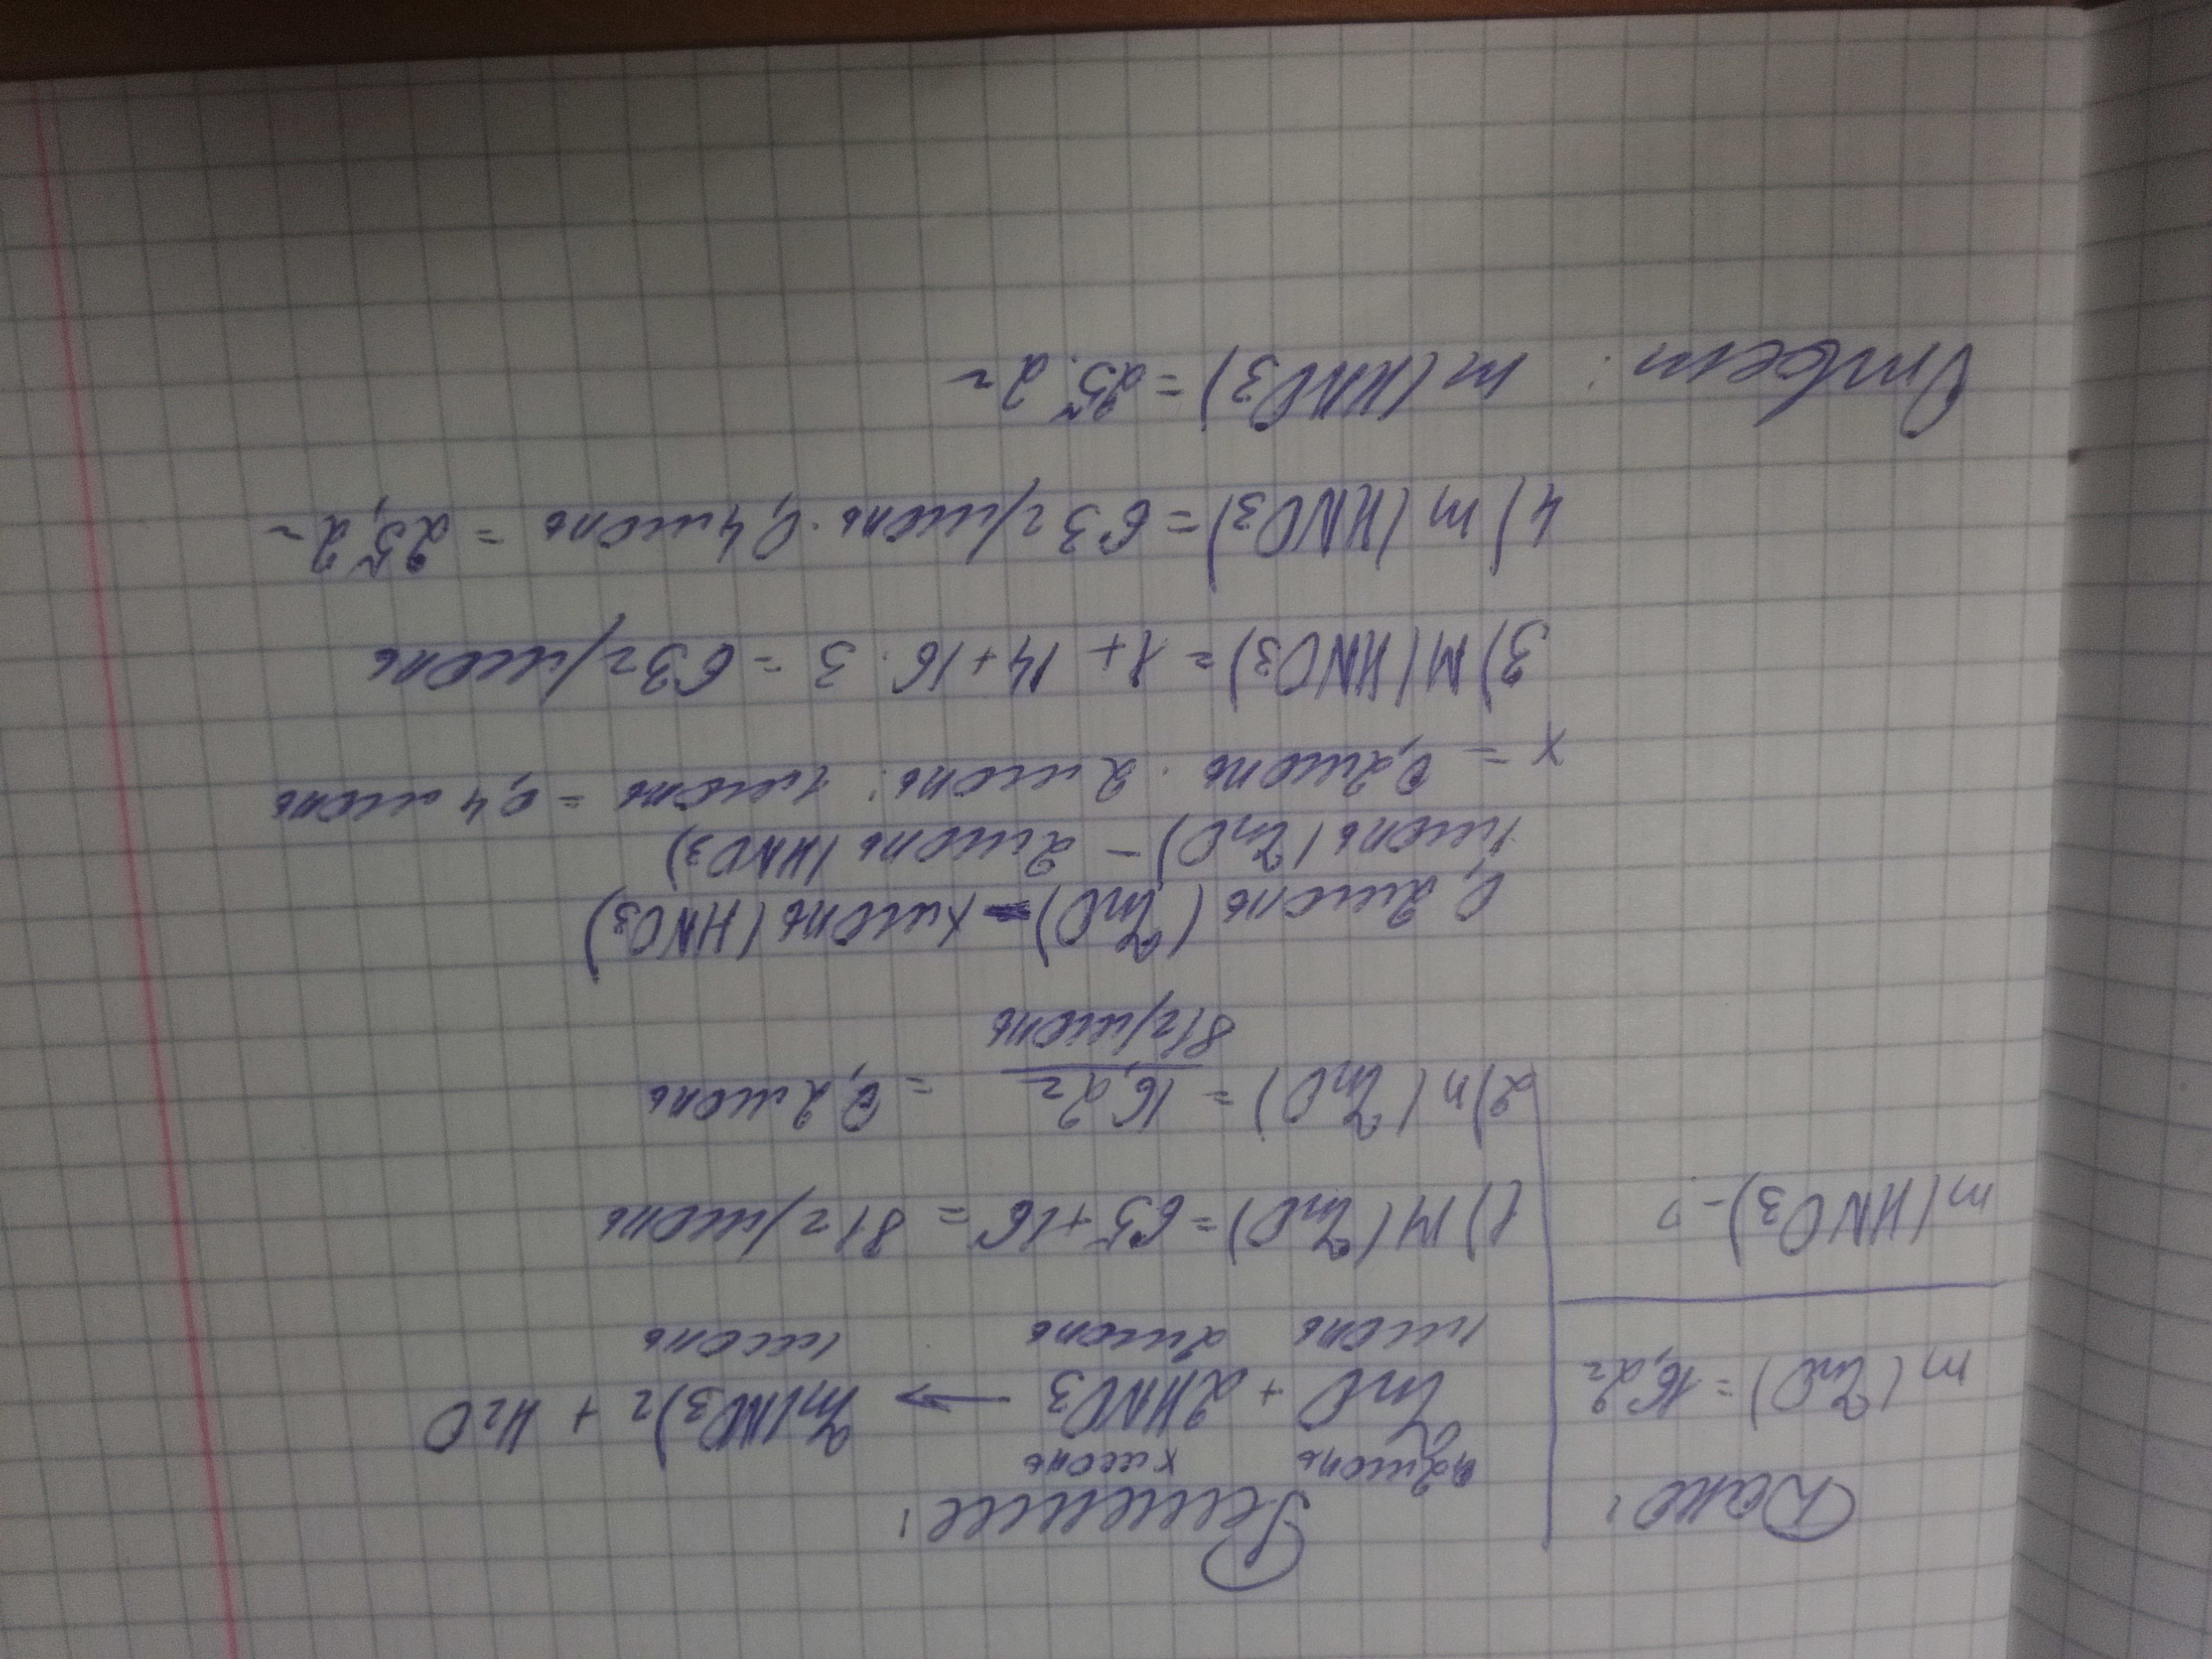 Дано:
m(ZnO) = 16,2г
m(HNO3) - ?
Решение:
0,2моль xмоль
ZnO + 2HNO3 → Zn(NO3)2 + H2O
1моль 2моль 1моль
1) M(ZnO) = 65+16 = 81г/моль
2) n(ZnO) = 16,2г / 81г/моль = 0,2моль
0,2моль (ZnO) - xмоль (HNO3)
1моль (ZnO) - 2моль (HNO3)
x = 0,2моль · 2моль : 1моль = 0,4моль
3) M(HNO3) = 1 + 14 + 16 · 3 = 63г/моль
4) m(HNO3) = 63г/моль · 0,4моль = 25,2г
Ответ: m(HNO3) = 25.2г